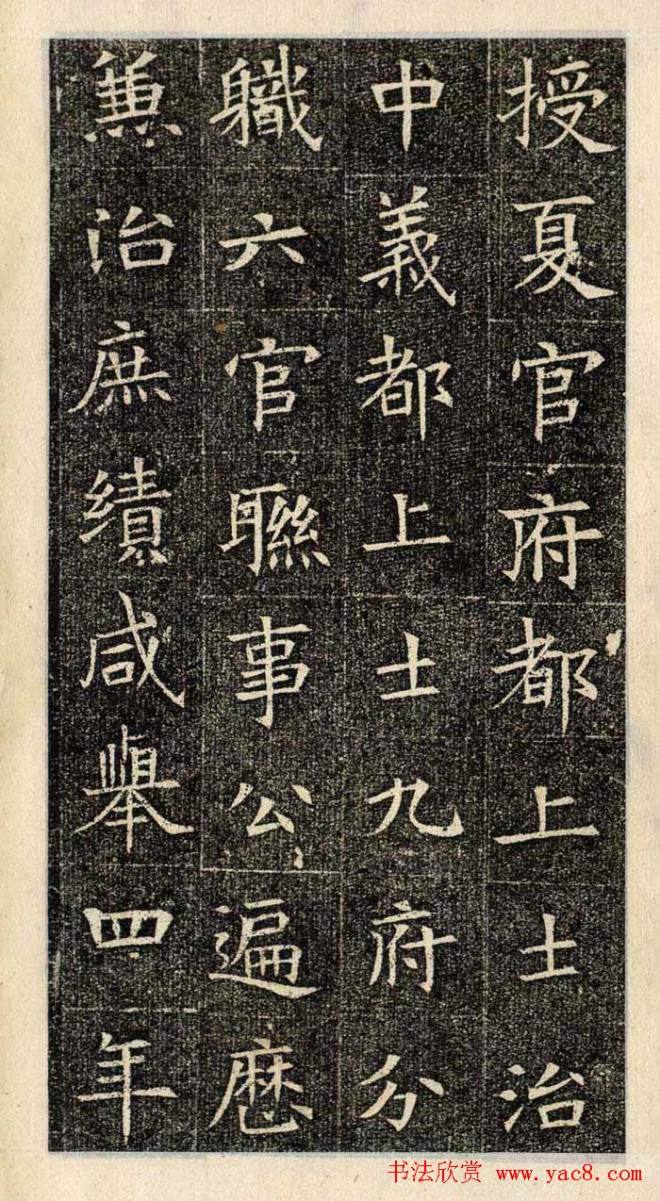 授夏官府都上士治
中義都上士九府分
軄六官聮事公遍歴
兼治庶績咸舉四年
书法欣赏 www.yac8.com